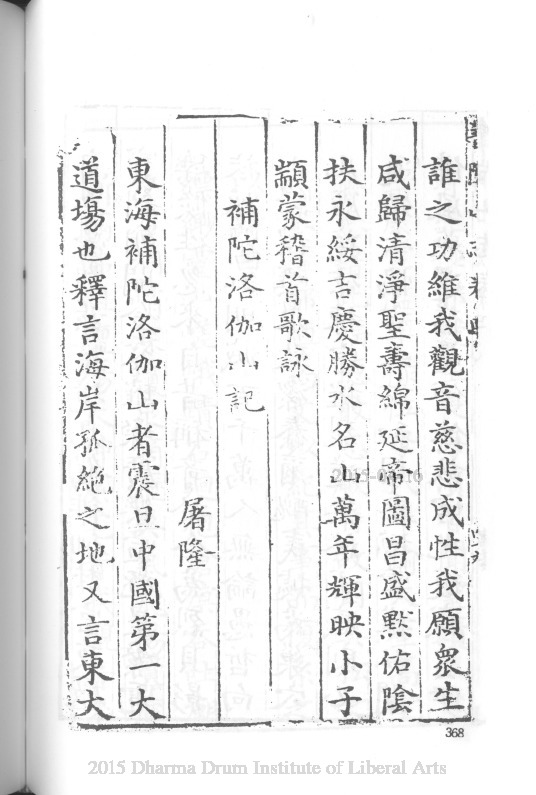 誰之功維我觀音慈悲成性我願衆生
咸歸清淨聖壽綿延帝圖昌盛默佑陰
扶永綏吉慶勝水名山萬年輝映小子
顓蒙稽首歌詠
補陀洛伽山記
屠隆
東海補陀洛伽山者震旦中國第一大
道塲也釋言海岸孤絶之地又言東大
368
2015 Dharma Drum Institute of Liberal Arts